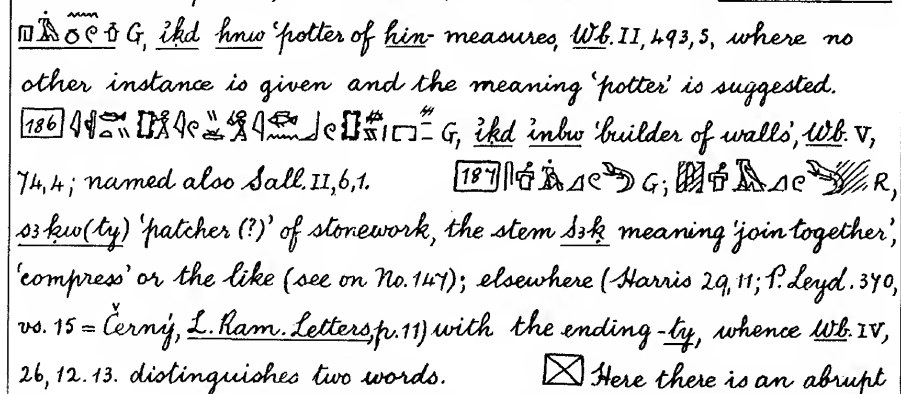 G, iḳd hnw 'potter of hin-measures, Wb. II, 493, 5, where no
other instance is given and the meaning 'potter' is suggested.
186 G, iḳd inbw 'builder of walls', Wb. V,
74, 4; named also Sall. II, 6, 1. 187 G; R,
s3ḳw(ty) 'patcher (?)' of stonework, the stem s3ḳ meaning 'join together',
'compress' or the like (see on No. 147); elsewhere (Harris 29, 11; P. Leyd. 370,
vs. 15 = Černý, L. Ram. Letters, p. 11) with the ending -ty, whence Wb. IV,
26, 12. 13. distinguishes two words. Here there is an abrupt